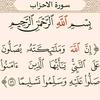 سورة الاحزاب
بِسْمِ اللَّهِ الرَّحْمَٰنِ الرَّحِيمِ
إِنَّ اللَّهَ وَمَلَٰٓئِكَتَهُۥ يُصَلُّونَ
عَلَى النَّبِيِّ يَٰٓأَيُّهَا الَّذِينَ ءَامَنُوا۟
صَلُّوا۟ عَلَيْهِ وَسَلِّمُوا۟ تَسْلِيمًا